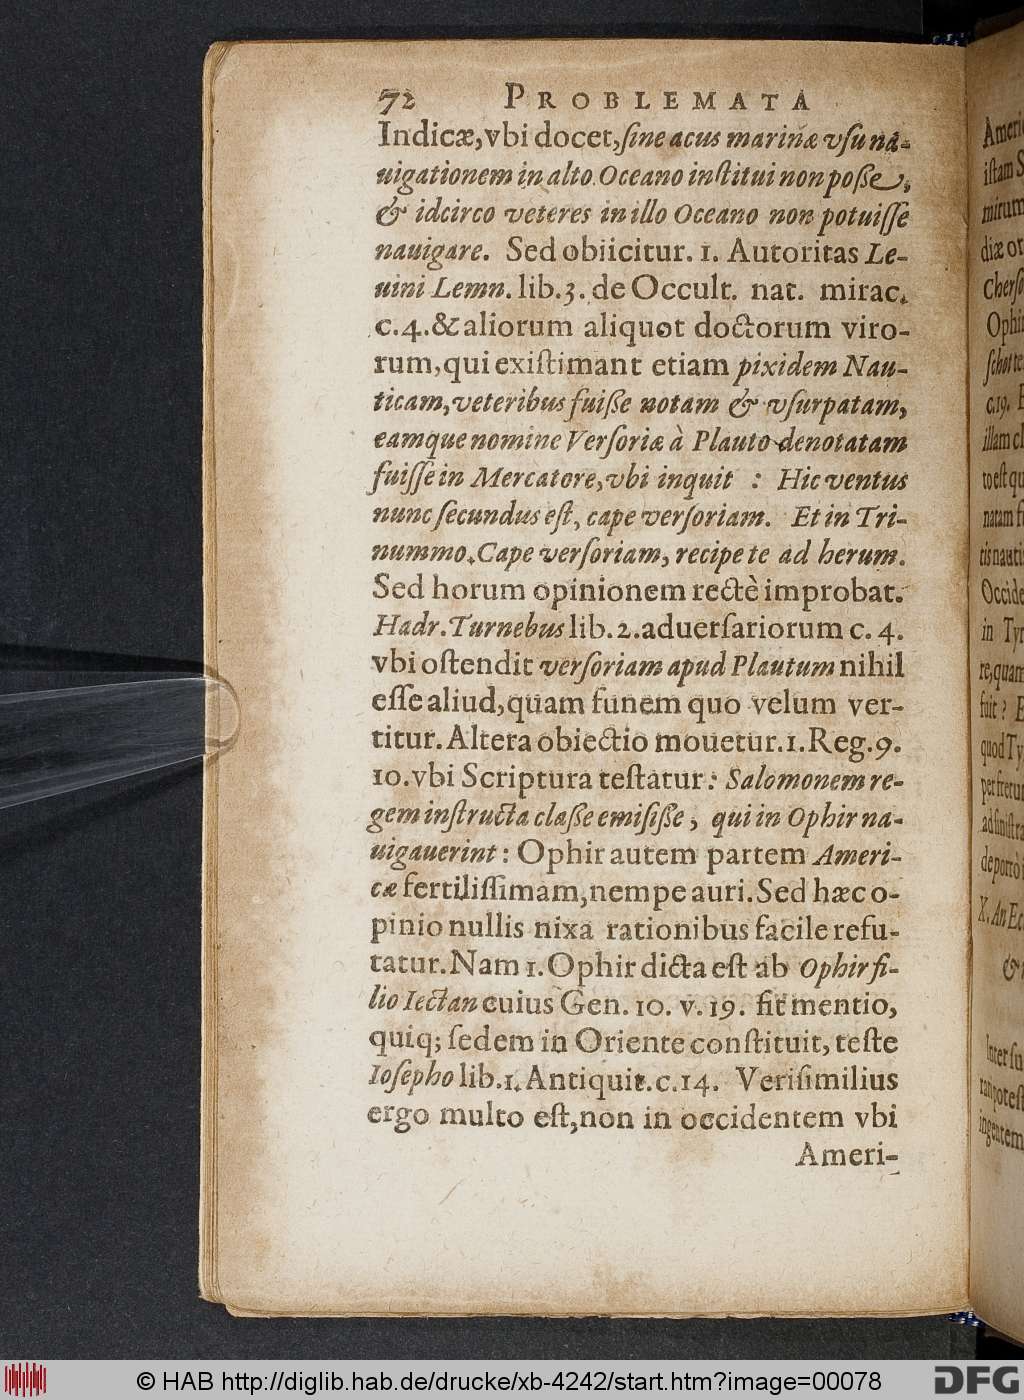 72 PROBLEMATA
Indicæ, vbi docet, ſine acus marinæ vſu na-
uigationem in alto Oceano inſtitui non poße,
& idcirco veteres in illo Oceano non potuiſſe
nauigare. Sed obiicitur. 1. Autoritas Le-
uini Lemn. lib. 3. de Occult. nat. mirac.
c. 4. & aliorum aliquot doctorum viro-
rum, qui exiſtimant etiam pixidem Nau-
ticam, veteribus fuiße notam & vſurpatam,
eamque nomine Verſoriæ à Plauto denotatam
fuiſſe in Mercatore, vbi inquit : Hic ventus
nunc ſecundus eſt, cape verſoriam. Et in Tri-
nummo. Cape verſoriam, recipe te ad herum.
Sed horum opinionem rectè improbat.
Hadr. Turnebus lib. 2. aduerſariorum c. 4.
vbi oſtendit verſoriam apud Plautum nihil
eſſe aliud, quam funem quo velum ver-
titur. Altera obiectio mouetur. 1. Reg. 9.
10. vbi Scriptura teſtatur: Salomonem re-
gem inſtructa claße emiſiße, qui in Ophir na-
uigauerint: Ophir autem partem Ameri-
cæ fertiliſſimam, nempe auri. Sed hæc o-
pinio nullis nixa rationibus facile refu-
tatur. Nam 1. Ophir dicta eſt ab Ophir fi-
lio Iectan cuius Gen. 10. v. 19. fit mentio,
quiq; ſedem in Oriente conſtituit, teſte
Ioſepho lib. 1. Antiquit. c. 14. Veriſimilius
ergo multo eſt, non in occidentem vbi
Ameri-
Ameri
iſtam S
mirum
diæ or
Cherſo
Ophir
ſchot te
c. 19. E
illam cl
to eſt qu
natam f
tis nauti
Occide
in Tyr
re, quam
fuit? E
quod Ty
per fretu
ad ſiniſtra
de porrò
X. An Ec
&
Inter ſu
ran poteſt
ingentem
© HAB http://diglib.hab.de/drucke/xb-4242/start.htm?image=00078
DFG